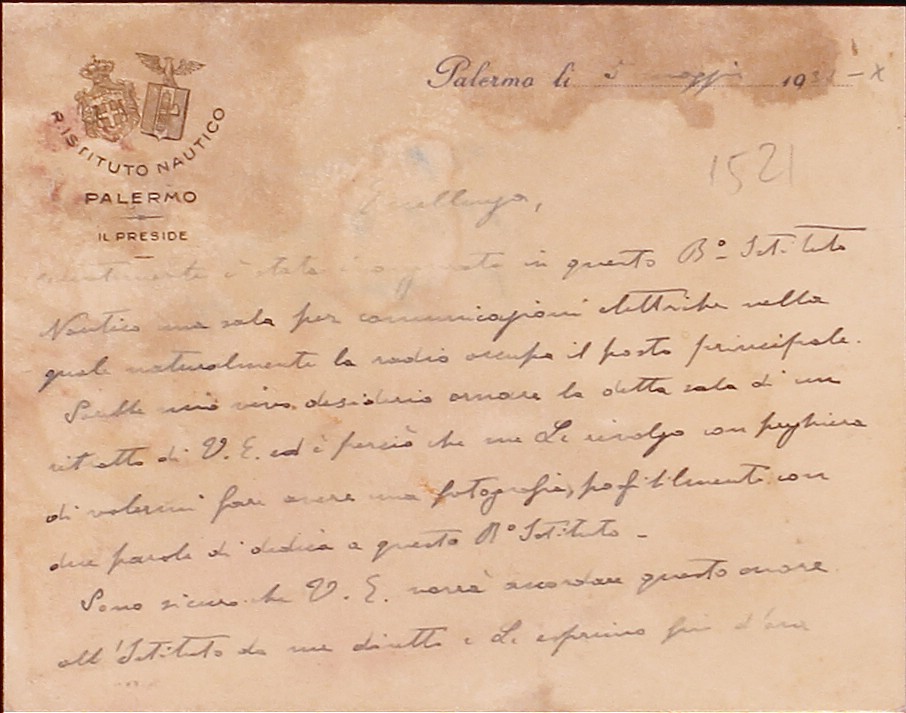 Palermo li 5 maggio 193 - X
R. ISTITUTO NAUTICO
PALERMO
IL PRESIDE
1521
Eccellenza,
è stata inaugurata in questo Rº Istituto
Nautico una sala per comunicazioni elettriche nella
quale naturalmente la radio occupa il posto principale.
Sarebbe mio vivo desiderio ornare la detta sala di un
ritratto di V. E. ed è perciò che me Le rivolgo con preghiera
di volermi fare avere una fotografia, possibilmente con
due parole di dedica a questo Rº Istituto -
Sono sicuro che V. E. vorrà accordare questo onore
all'Istituto da me diretto e Le esprimo fin d'ora